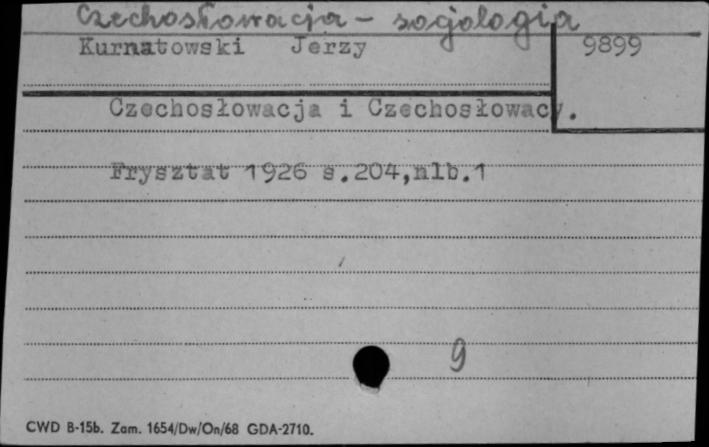 Czechosłowacja - socjologia
Kurnatowski Jerzy 9899
Czechosłowacja i Czechosłowacy.
Frysztat 1926 s.204,nlb.1
9
CWD B-15b. Zam. 1654/Dw/On/68 GDA-2710.